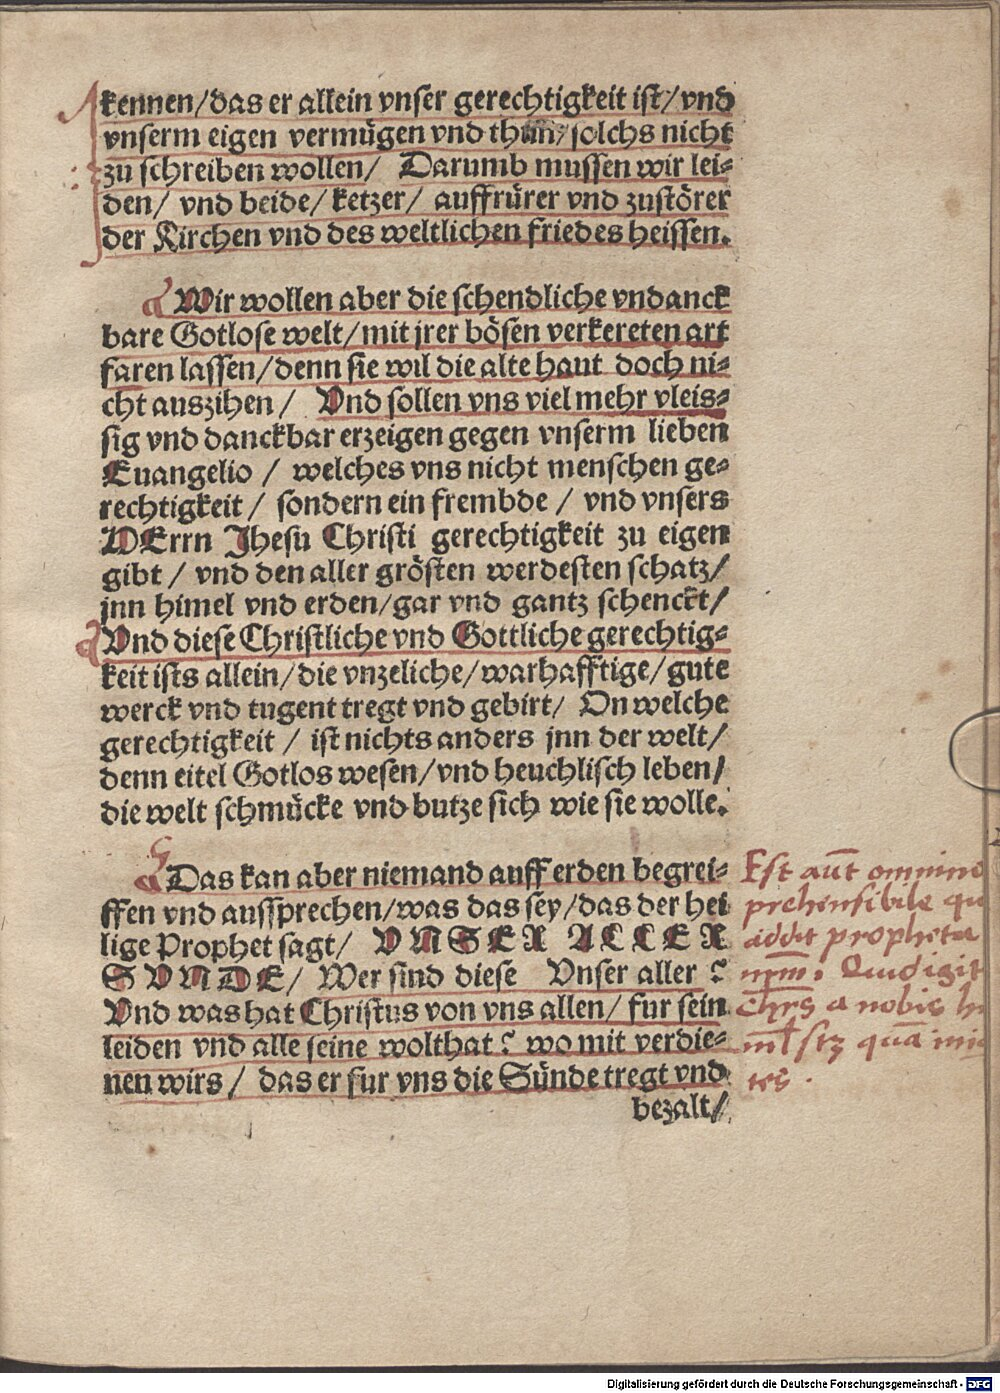 kennen/das er allein vnser gerechtigkeit ist/vnd
vnserm eigen vermügen vnd thun/solchs nicht
zu schreiben wollen/ Darumb mussen wir lei⸗
den/ vnd beide/ ketzer/ auffrürer vnd zustörer
der Kirchen vnd des weltlichen friedes heissen.
Wir wollen aber die schendliche vndanck
bare Gotlose welt/mit jrer bösen verkereten art
faren lassen/denn sie wil die alte haut doch ni⸗
cht auszihen/ Vnd sollen vns viel mehr vleis⸗
sig vnd danckbar erzeigen gegen vnserm lieben
Euangelio / welches vns nicht menschen ge⸗
rechtigkeit / sondern ein frembde / vnd vnsers
HErrn Jhesu Christi gerechtigkeit zu eigen
gibt / vnd den aller grösten werdesten schatz/
jnn himel vnd erden/gar vnd gantz schenckt/
Vnd diese Christliche vnd Gottliche gerechtig⸗
keit ists allein/die vnzeliche/warhafftige/gute
werck vnd tugent tregt vnd gebirt/ On welche
gerechtigkeit / ist nichts anders jnn der welt/
denn eitel Gotlos wesen/vnd heuchlisch leben/
die welt schmücke vnd butze sich wie sie wolle.
Das kan aber niemand auff erden begrei⸗
ffen vnd aussprechen/was das sey/das der hei
lige Prophet sagt/ VNSER ALLER
SVNDE/ Wer sind diese Vnser aller?
Vnd was hat Christus von vns allen/ fur sein
leiden vnd alle seine wolthat? wo mit verdie⸗
nen wirs/ das er fur vns die Sünde tregt vnd
bezalt/
Est aūt omnino
prehensibile
addit propheta
Quid igit
a nobis
quā
tes.
Digitalisierung gefördert durch die Deutsche Forschungsgemeinschaft - DFG